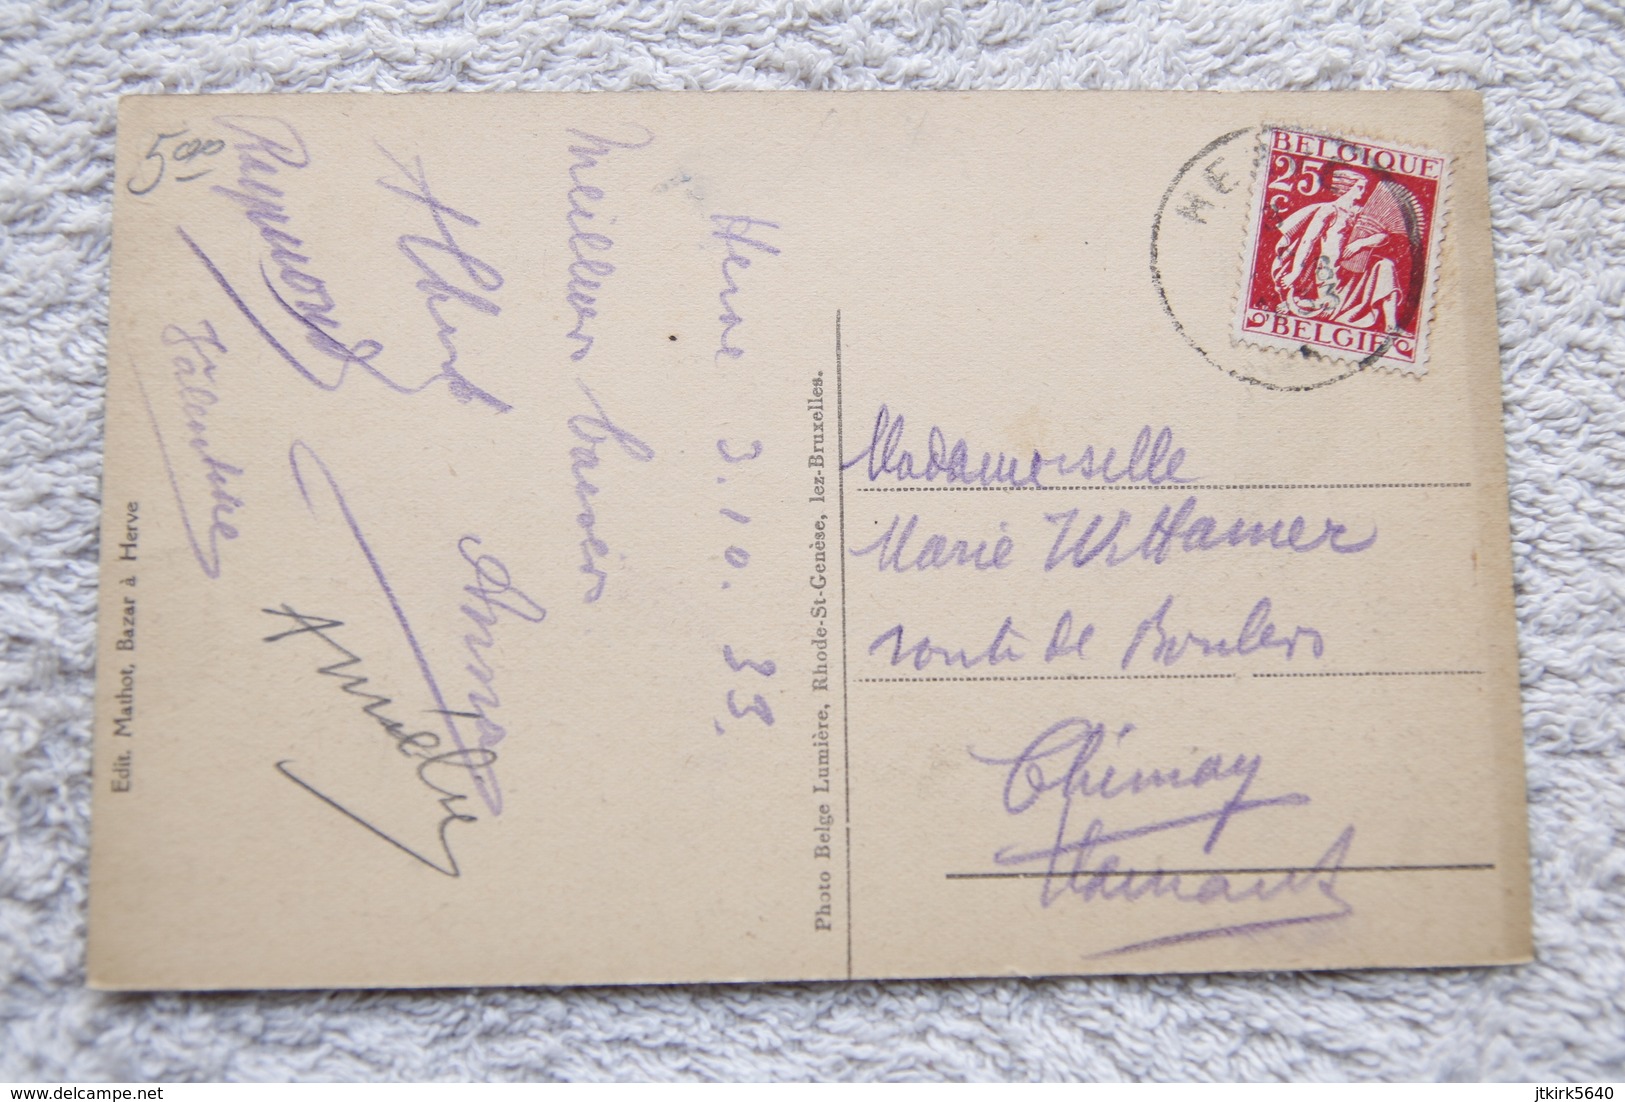 5.00
Herve 3.10.33.
Meilleurs baisers
Albert
Raymond
Valentine
Edit. Mathot, Bazar à Herve
Photo Belge Lumière, Rhode-St-Genèse, lez-Bruxelles.
HE
BELGIQUE
25
C
BELGIE
Mademoiselle
Marie Wittamer
route de Bourlers
Chimay
Hainaut
delcampe.net
jtkirk5640